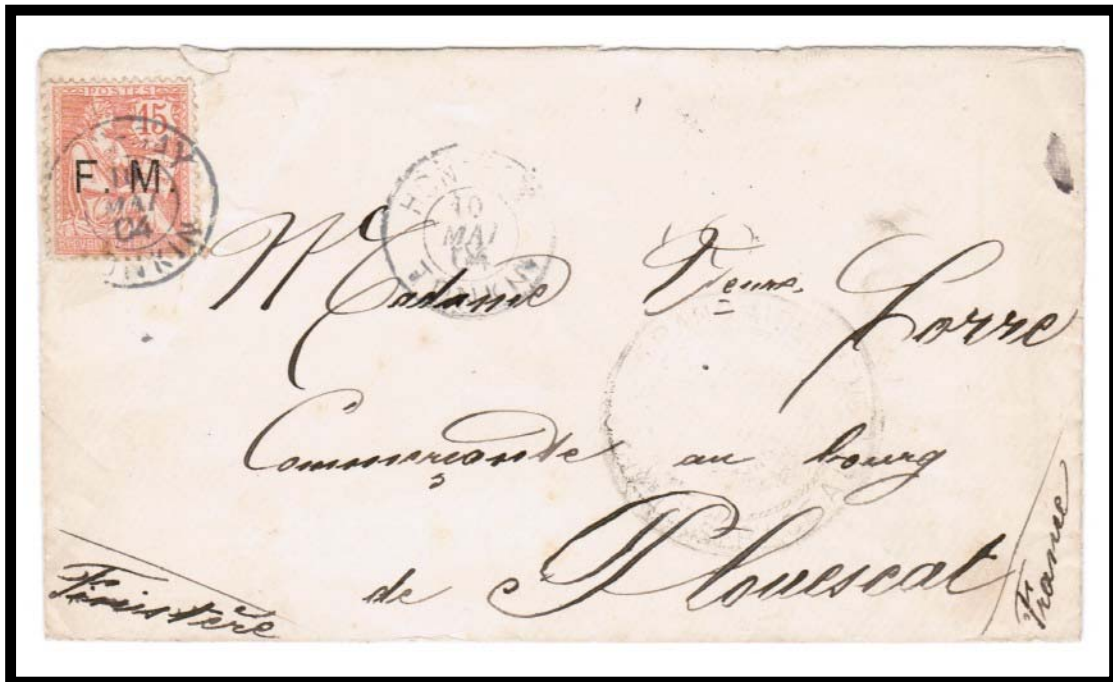 POSTES
15
F. M.
10
MAI
04
TONKIN
HON
10
MAI
04
TONKIN
Madame Veuve Lorre
Commerçante au bourg
de Plouescat
Finistère
France